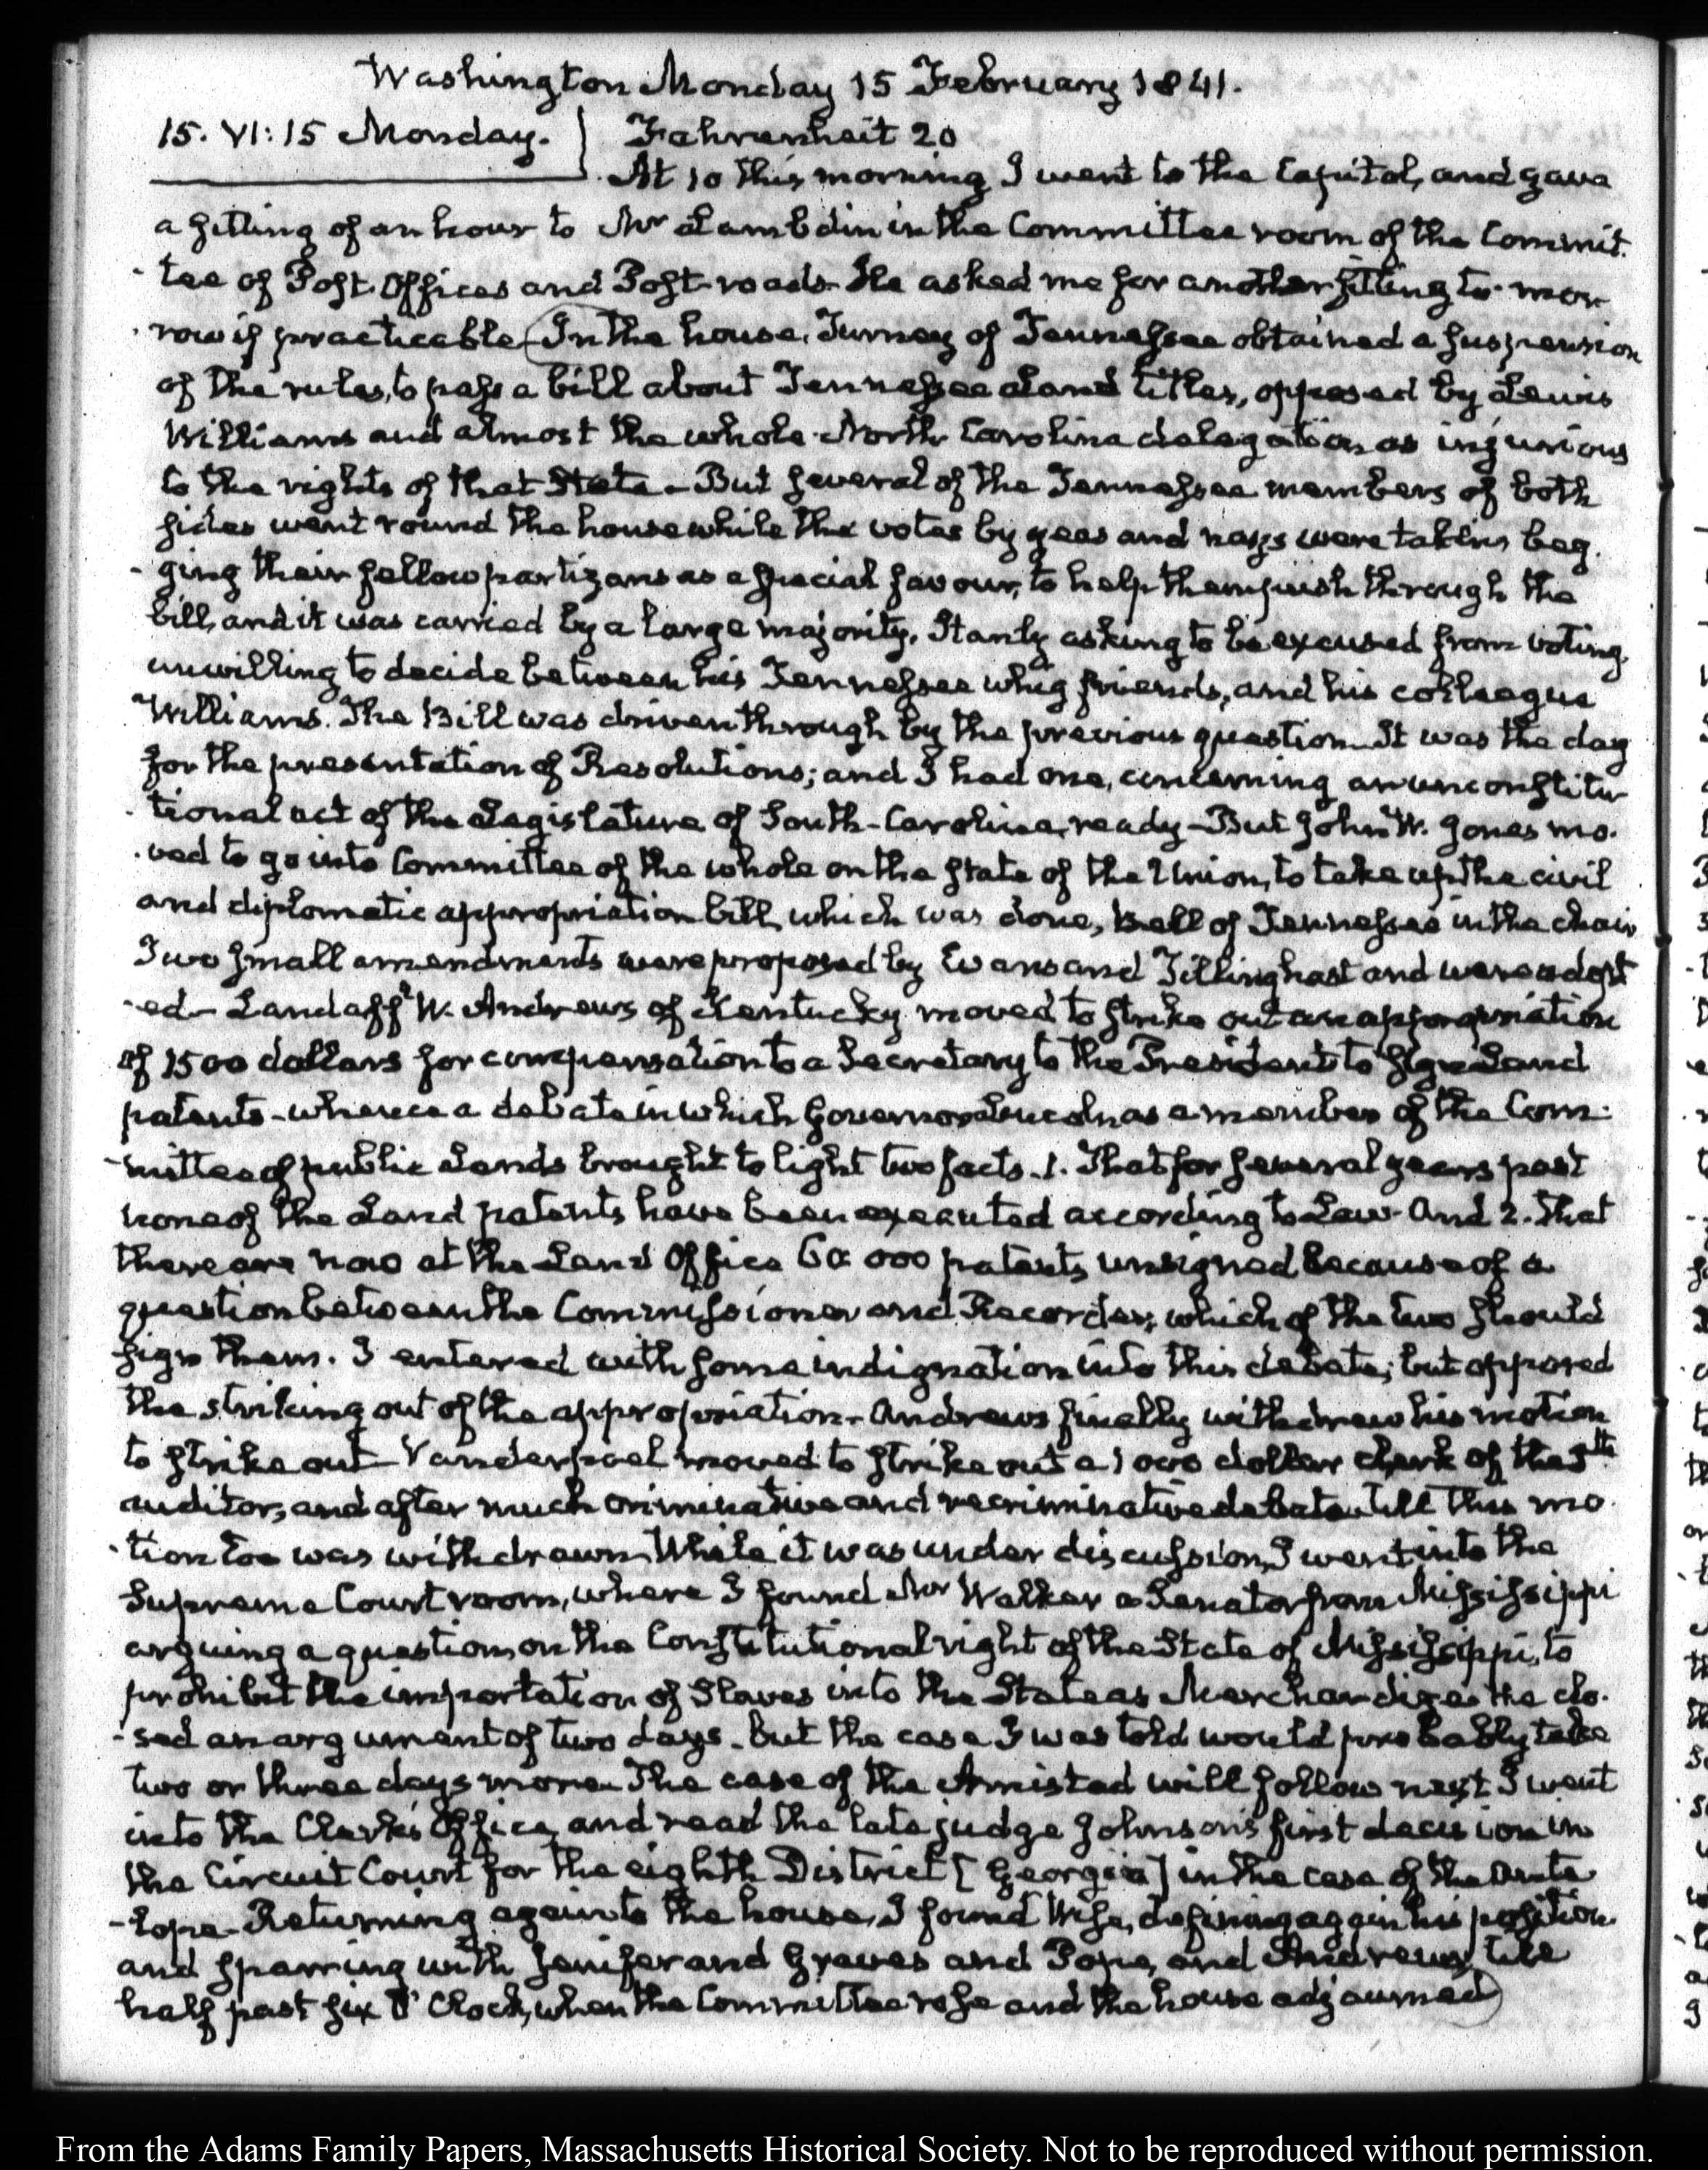 Washington Monday 15 February 1841.
15. VI:15 Monday. Fahrenheit 20
At 10 this morning I went to the Capitol, and gave
a sitting of an hour to Mr Lambdin in the Committee room of the Commit-
-tee of Post Offices and Post-roads. He asked me for another sitting to-mor-
-row if practicable. In the house, Turney of Tennessee obtained a suspension
of the rules, to pass a bill about Tennessee Land titles, opposed by Lewis
Williams and almost the whole North Carolina delegation as injurious
to the rights of that State - But several of the Tennessee members of both
sides went round the house while the votes by yeas and nays were taking beg-
-ging their fellow partizans as a special favour, to help them push through the
bill, and it was carried by a large majority, Stanly asking to be excused from voting,
unwilling to decide between his Tennessee whig friends, and his colleague
Williams. The Bill was driven through by the previous question. It was the day
for the presentation of Resolutions; and I had one, concerning an unconstitu-
-tional act of the Legislature of South-Carolina, ready - But John W. Jones mo-
-ved to go into Committee of the whole on the state of the Union, to take up the civil
and diplomatic appropriation bill, which was done, Bell of Tennessee in the chair
Two small amendments were proposed by Evans and Tillinghast and were adopt
-ed - Landaff W. Andrews of Kentucky moved to strike out an appropriation
of 1500 dollars for compensation to a Secretary to the President to sign Land
patents - whence a debate in which Governor Lincoln as a member of the Com-
-mittee of public Lands brought to light two facts. 1. That for several years past
none of the Land patents have been executed according to Law. And 2. That
there are now at the Land Office 60 000 patents unsigned because of a
question between the Commissioner and Recorder, which of the two should
sign them. I entered with some indignation into this debate; but opposed
the striking out of the appropriation - Andrews finally withdrew his motion
to strike out - Vanderpoel moved to strike out a 1000 dollar clerk of the 5th
auditor, and after much criminative and recriminative debate till this mo-
-tion too was withdrawn. While it was under discussion, I went into the
Supreme Court room, where I found Mr Walker a Senator from Mississippi
arguing a question on the Constitutional right of the State of Mississippi, to
prohibit the importation of Slaves into the State as Merchandize. He clo-
-sed an argument of two days - but the case I was told would probably take
two or three days more. The case of the Amistad will follow next I went
into the Clerk's Office, and read the late judge Johnson's first decision in
the Circuit Court for the eighth District [Georgia] in the case of the Ante-
-lope - Returning again to the house, I found Wise, defining again his position
and sparring with Jenifer and Graves and Pope, and Andrews, till
half past six O'Clock, when the Committee rose and the house adjourned
From the Adams Family Papers, Massachusetts Historical Society. Not to be reproduced without permission.